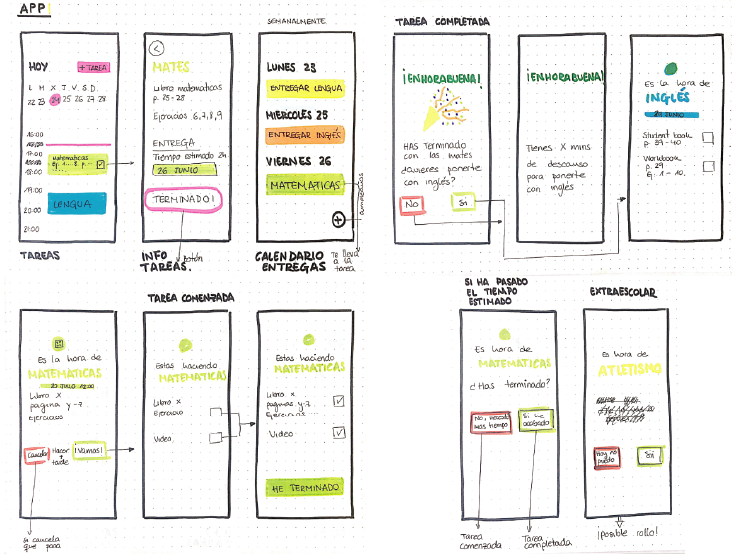 APP!
HOY
+TAREA
L M X J V. S. D.
22 23 24 25 26 27 28
16:00
17:00
Matematicas
18:00
19:00
LENGUA
20:00
21:00
TAREAS
MATES
Libro matematicas
p. 25-28
Ejercicios 6,7,8,9
ENTREGA
Tiempo estimado 2h
26 JUNIO
TERMINADO!
INFO
TAREAS.
Botón
SEMANALMENTE
LUNES 23
ENTREGAR LENGUA
MIERCOLES 25
ENTREGAR INGLÉS
VIERNES 26
MATEMATICAS
+
CALENDARIO
ENTREGAS
Te lleva
a la
tarea
TAREA COMPLETADA
¡ENHORABUENA!
HAS terminado
con las mates
¿quieres ponerte
con inglés?
No
Si
¡ENHORABUENA!
Tienes X mins
de descanso
para ponerte
con inglés
Es la hora de
INGLÉS
JUNIO
Student book
p. 39-40
Workbook
p. 29
Ej. 1-10.
Es la hora de
MATEMATICAS
Libro X
pagina y-z
Ejercicios
Cancelar
Hacer
+
tarde
¡Vamos!
si cancela
que pasa
TAREA COMENZADA
Estas haciendo
MATEMATICAS
Libro X
Ejercicio
Video
Estas haciendo
MATEMATICAS
Libro X
paginas y-z
Ejercicios
Video
HE TERMINADO
SI HA PASADO
EL TIEMPO
ESTIMADO
Es hora de
MATEMATICAS
¿Has terminado?
No, necesito
más tiempo
Si he
acabado
Tarea
comenzada
Tarea
completada
EXTRAESCOLAR
Es hora de
ATLETISMO
Hoy no
puedo
Si
¡posible rollo!